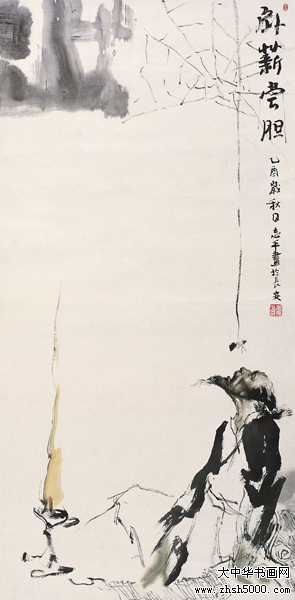 卧薪尝胆
乙酉岁秋日志平画於长安
大中华书画网
www.zhsh5000.com